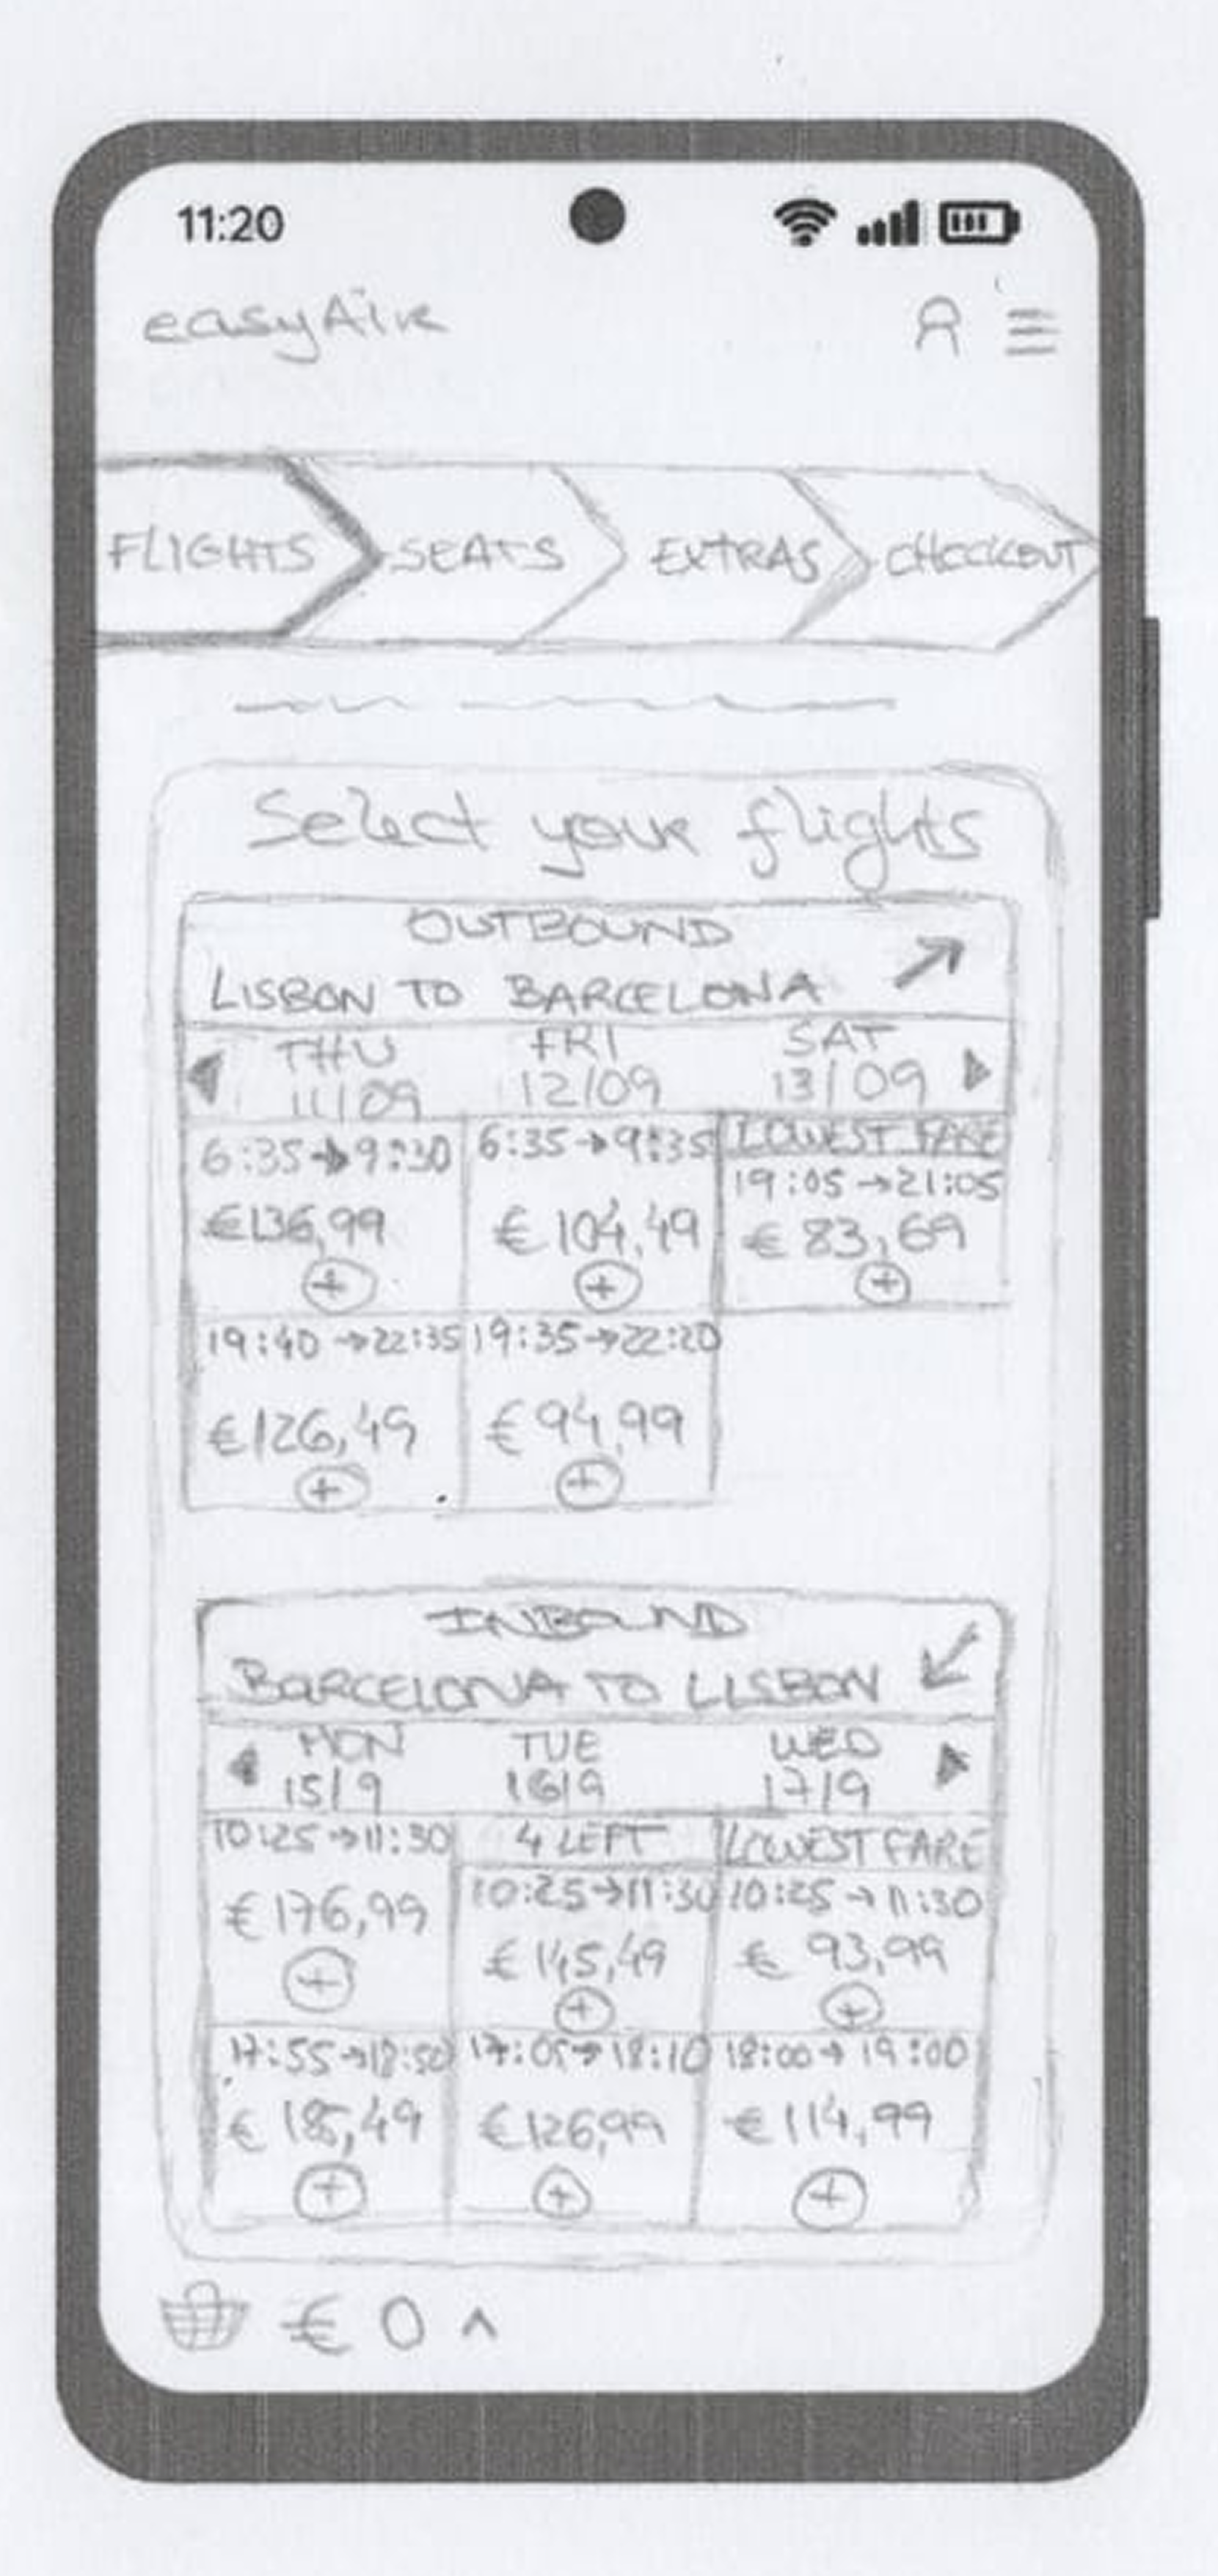 11:20
easyAir
FLIGHTS SEATS EXTRAS CHECKOUT
Select your flights
OUTBOUND
LISBON TO BARCELONA
THU FRI SAT
11/09 12/09 13/09
6:35→9:30 6:35→9:35 LOWEST FARE
19:05→21:05
€136,99 €104,49 €83,69
+ + +
19:40→22:35 19:35→22:20
€126,49 €94,99
+ +
INBOUND
BARCELONA TO LISBON
MON TUE WED
15/9 16/9 17/9
10:25→11:30 4 LEFT LOWEST FARE
10:25→11:30 10:25→11:30
€176,99 €145,49 €93,99
+ + +
17:55→18:50 17:05→18:10 18:00→19:00
€185,49 €126,99 €114,99
+ + +
€ 0 ^